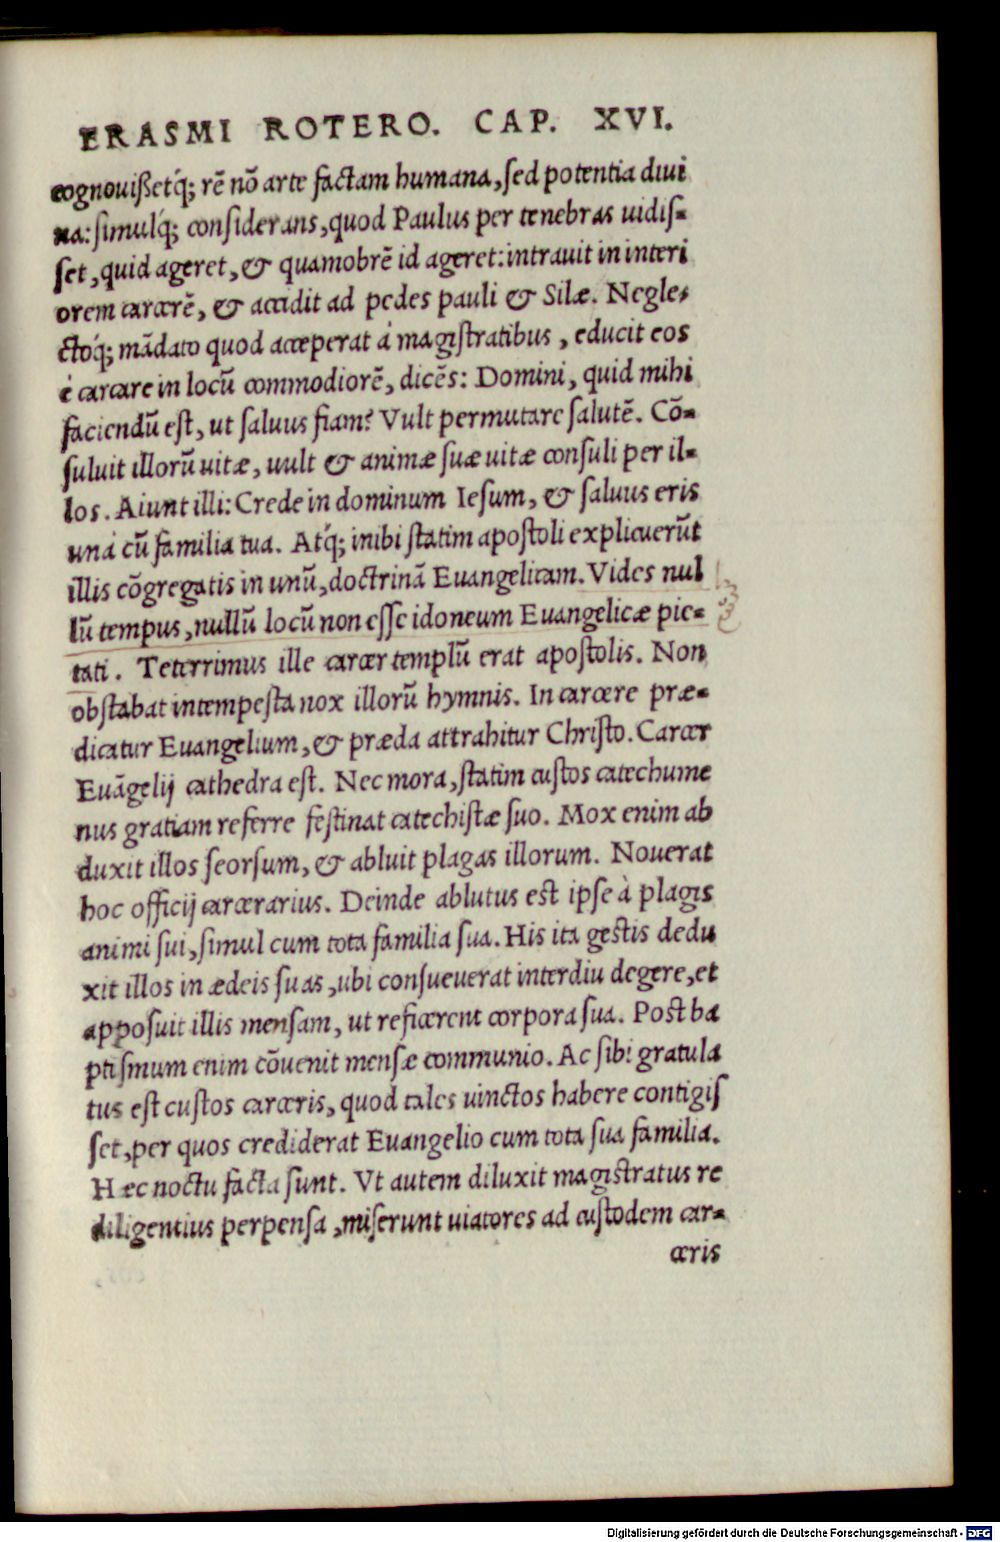 ERASMI ROTERO. CAP. XVI.
cognouißetq́; rē nō arte factam humana, ſed potentia diui
na: ſimulq́; conſiderans, quod Paulus per tenebras uidiſ=
ſet, quid ageret, & quamobrē id ageret: intrauit in interi
orem carcerē, & accidit ad pedes pauli & Silæ. Negle=
ctoq́; mādato quod acceperat á magiſtratibus, educit eos
é carcare in locū commodiorē, dicēs: Domini, quid mihi
faciendū eſt, ut ſaluus fiam? Vult permutare ſalutē. Cō=
ſuluit illorū uitæ, uult & animæ ſuæ uitæ conſuli per il=
los. Aiunt illi: Crede in dominum Ieſum, & ſaluus eris
uná cū familia tua. Atq́; inibi ſtatim apoſtoli explicuerūt
illis cōgregatis in unū, doctrinā Euangelicam. Vides nul
lū tempus, nullū locū non eſſe idoneum Euangelicæ pie=
tati. Teterrimus ille carcer templū erat apoſtolis. Non
obſtabat intempeſta nox illorū hymnis. In carcere præ=
dicatur Euangelium, & præda attrahitur Chriſto. Carcer
Euāgelij cathedra eſt. Nec mora, ſtatim cuſtos catechume
nus gratiam referre feſtinat catechiſtæ ſuo. Mox enim ab
duxit illos ſeorſum, & abluit plagas illorum. Nouerat
hoc officij carcerarius. Deinde ablutus eſt ipſe à plagis
animi ſui, ſimul cum tota familia ſua. His ita geſtis dedu
xit illos in ædeis ſuas, ubi conſueuerat interdiu degere, et
appoſuit illis menſam, ut reficerent corpora ſua. Poſt ba
ptiſmum enim cōuenit menſæ communio. Ac ſibi gratula
tus eſt cuſtos carceris, quod tales uinctos habere contigiſ
ſet, per quos crediderat Euangelio cum tota ſua familia.
Hæc noctu facta ſunt. Vt autem diluxit magiſtratus re
diligentius perpenſa, miſerunt uiatores ad cuſtodem car=
ceris
Digitalisierung gefördert durch die Deutsche Forschungsgemeinschaft - DFG